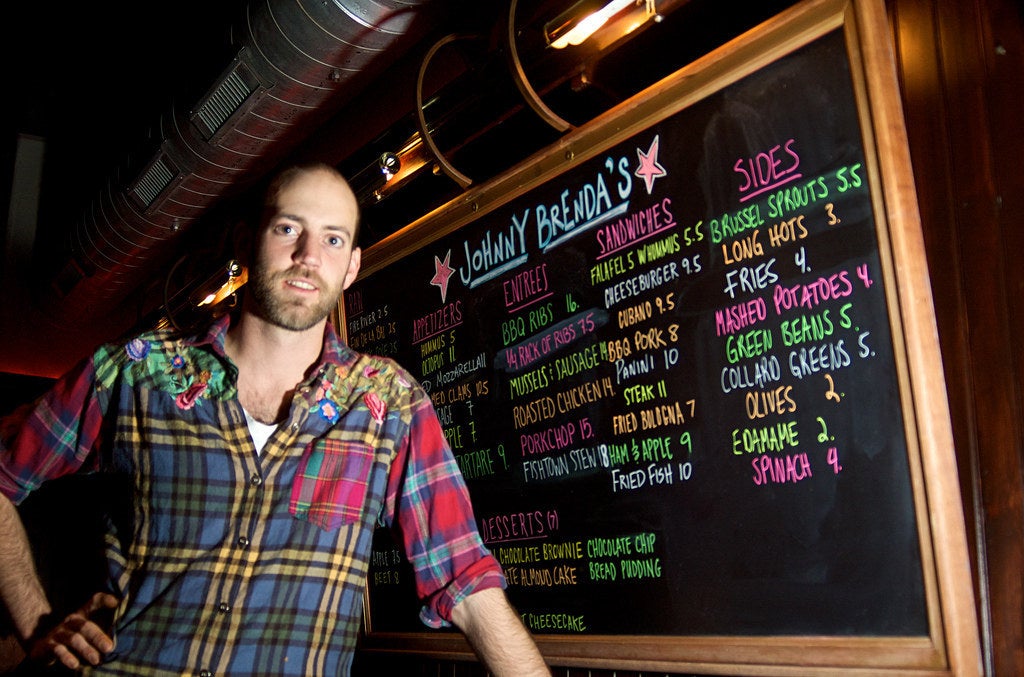 JOHNNY BRENDA'S
RAW
APPETIZERS
HUMMUS 5
OCTOPUS 11
MOZZARELLA 11
CLAMS 10.5
7
APPLE 7.
TARTARE 9.
ENTREES
BBQ RIBS 16.
1/4 RACK OF RIBS 7.5
MUSSELS & SAUSAGE
ROASTED CHICKEN 14.
PORKCHOP 15.
FISHTOWN STEW 18
SANDWICHES
FALAFEL S W HUMMUS 5.5
CHEESEBURGER 9.5
CUBANO 9.5
BBQ PORK 8
PANINI 10
STEAK 11
FRIED BOLOGNA 7
HAM & APPLE 9
FRIED FISH 10
SIDES
BRUSSEL SPROUTS 5.5
LONG HOTS 3.
FRIES 4.
MASHED POTATOES 4.
GREEN BEANS 5.
COLLARD GREENS 5.
OLIVES 2.
EDAMAME 2.
SPINACH 4.
DESSERTS (7)
CHOCOLATE BROWNIE
ALMOND CAKE
CHEESECAKE
CHOCOLATE CHIP
BREAD PUDDING
APPLE 7.5
BEET 8